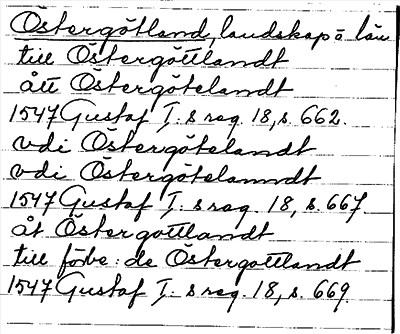 Östergötland, landskap o län
till Östergöttlandt
ått Östergötelandt
1547 Gustaf I:s reg. 18, s. 662.
vdi Östergötelandt
vdi Östergötelanndt
1547 Gustaf I:s reg. 18, s. 667.
åt Östergottlandt
till förbe:de Östergottlandt
1547 Gustaf I:s reg. 18, s. 669